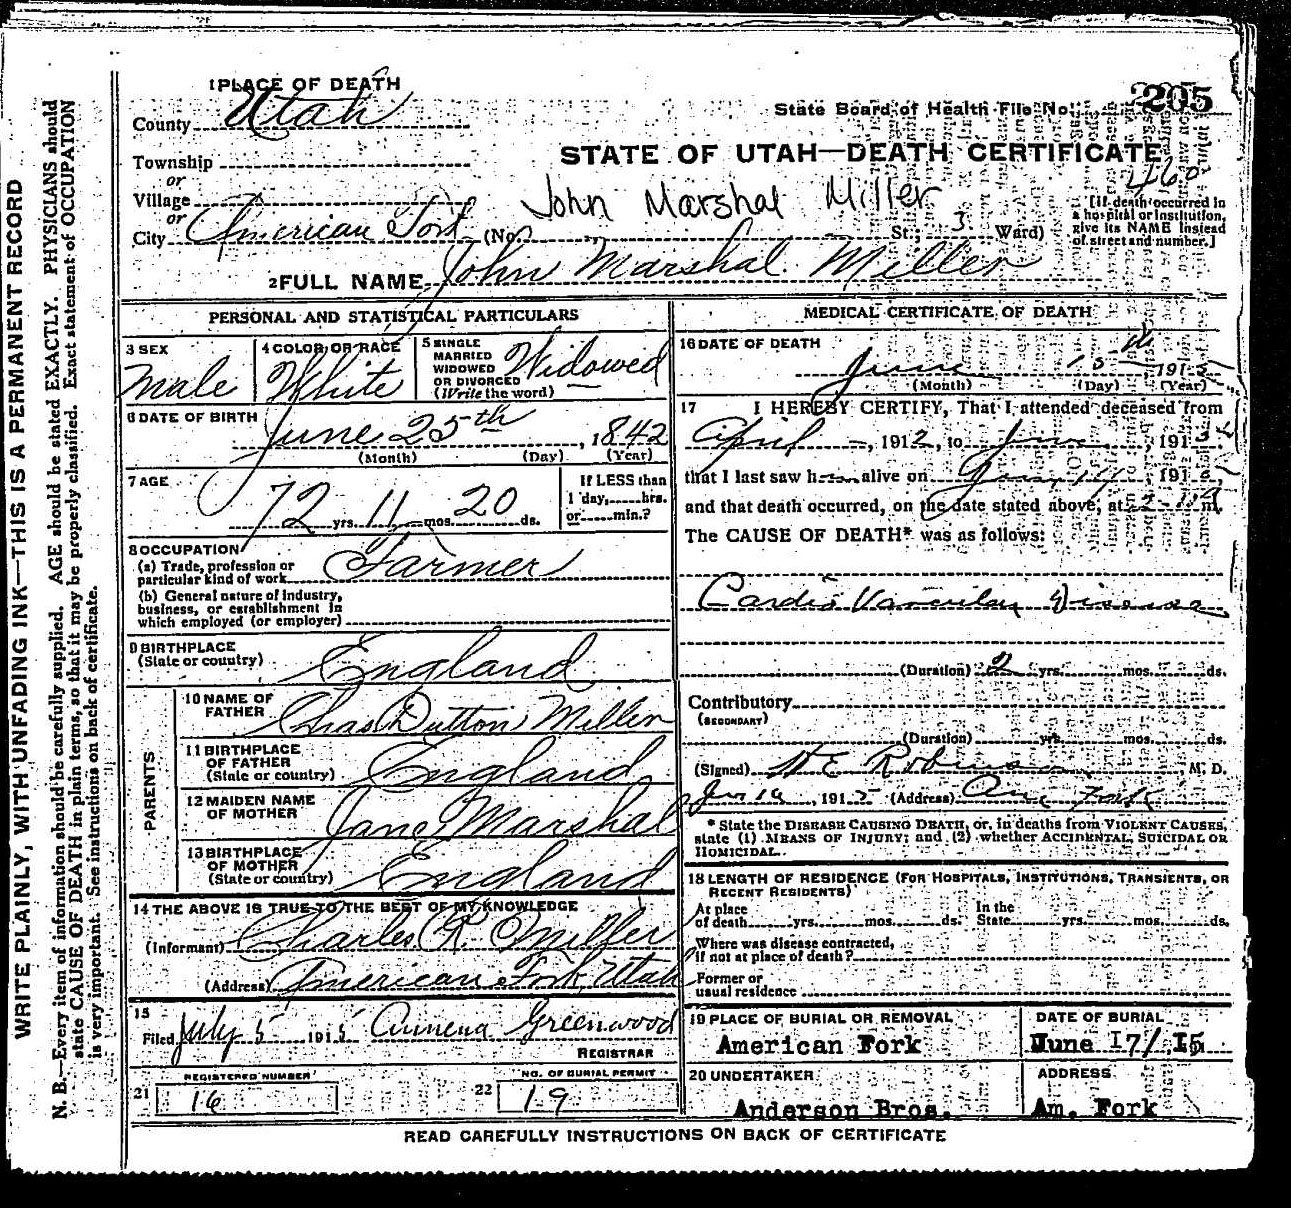 1 PLACE OF DEATH
County Utah
Township
or
Village
or
City American Fork (No. St.; 3 Ward)
State Board of Health File No. 205
STATE OF UTAH—DEATH CERTIFICATE
460
John Marshal Miller
[If death occurred in
a hospital or institution,
give its NAME instead
of street and number.]
2 FULL NAME John Marshal Miller
PERSONAL AND STATISTICAL PARTICULARS
3 SEX
Male
4 COLOR OR RACE
White
5 SINGLE
MARRIED
WIDOWED
OR DIVORCED
(Write the word)
Widowed
6 DATE OF BIRTH
June 25th, 1842
(Month) (Day) (Year)
7 AGE
72 yrs. 11 mos. 20 ds.
If LESS than
1 day, hrs.
or min.?
8 OCCUPATION
(a) Trade, profession or
particular kind of work Farmer
(b) General nature of Industry,
business, or establishment in
which employed (or employer)
9 BIRTHPLACE
(State or country) England
PARENTS
10 NAME OF
FATHER Chas Dutton Miller
11 BIRTHPLACE
OF FATHER
(State or country) England
12 MAIDEN NAME
OF MOTHER Jane Marshal
13 BIRTHPLACE
OF MOTHER
(State or country) England
14 THE ABOVE IS TRUE TO THE BEST OF MY KNOWLEDGE
(Informant) Charles R. Miller
(Address) American Fork, Utah
15
Filed July 5 1915 Greenwood
REGISTRAR
REGISTERED NUMBER
21 16
NO. OF BURIAL PERMIT
22 19
MEDICAL CERTIFICATE OF DEATH
16 DATE OF DEATH
June 15th 1915
(Month) (Day) (Year)
17 I HEREBY CERTIFY, That I attended deceased from
April, 1912, to June, 1915,
that I last saw h alive on June 14, 1915,
and that death occurred, on the date stated above, at m.
The CAUSE OF DEATH* was as follows:
Cardio Vascular Disease
(Duration) 2 yrs. mos. ds.
Contributory
(SECONDARY)
(Duration) yrs. mos. ds.
(Signed) Robinson M. D.
1915 (Address) Am Fork
* State the DISEASE CAUSING DEATH, or, in deaths from VIOLENT CAUSES,
state (1) MEANS OF INJURY; and (2) whether ACCIDENTAL, SUICIDAL OR
HOMICIDAL.
18 LENGTH OF RESIDENCE (FOR HOSPITALS, INSTITUTIONS, TRANSIENTS, OR
RECENT RESIDENTS)
At place
of death yrs. mos. ds.
In the
State yrs. mos. ds.
Where was disease contracted,
if not at place of death?
Former or
usual residence
19 PLACE OF BURIAL OR REMOVAL
American Fork
DATE OF BURIAL
June 17/ 15
20 UNDERTAKER
Anderson Bros.
ADDRESS
Am. Fork
READ CAREFULLY INSTRUCTIONS ON BACK OF CERTIFICATE
WRITE PLAINLY, WITH UNFADING INK—THIS IS A PERMANENT RECORD
N. B.—Every item of information should be carefully supplied. AGE should be stated EXACTLY. PHYSICIANS should
state CAUSE OF DEATH in plain terms, so that it may be properly classified. Exact statement of OCCUPATION
is very important. See instructions on back of certificate.